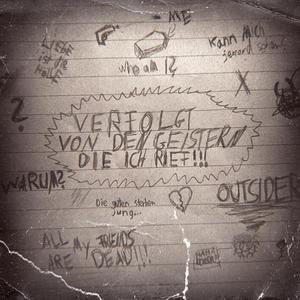 ME
Liebe
ist die
Hölle
who am I?
Kann Mich
jemand
X
?
VERFOLGT
VON DEN GEISTERN
DIE ICH RIEF!!!
WARUM?
Die guten sterben
jung...
OUTSIDER
ALL MY FRIENDS
ARE DEAD!!!